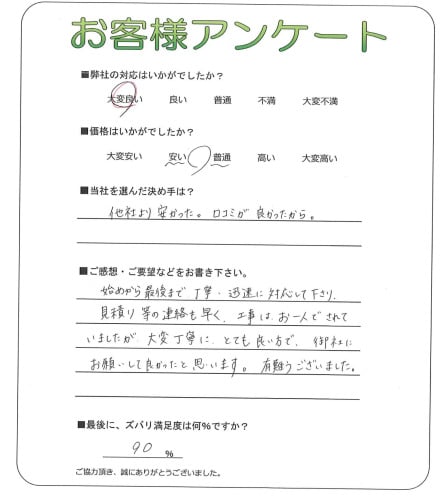 お客様アンケート
■弊社の対応はいかがでしたか？
大変良い 良い 普通 不満 大変不満
■価格はいかがでしたか？
大変安い 安い 普通 高い 大変高い
■当社を選んだ決め手は？
他社より安かった。口コミが良かったから。
■ご感想・ご要望などをお書き下さい。
始めから最後まで丁寧・迅速に対応して下さり、
見積り等の連絡も早く、工事はお一人でされて
いましたが、大変丁寧に、とても良い方で、御社に
お願いして良かったと思います。有難うございました。
■最後に、ズバリ満足度は何％ですか？
90 %
ご協力頂き、誠にありがとうございました。